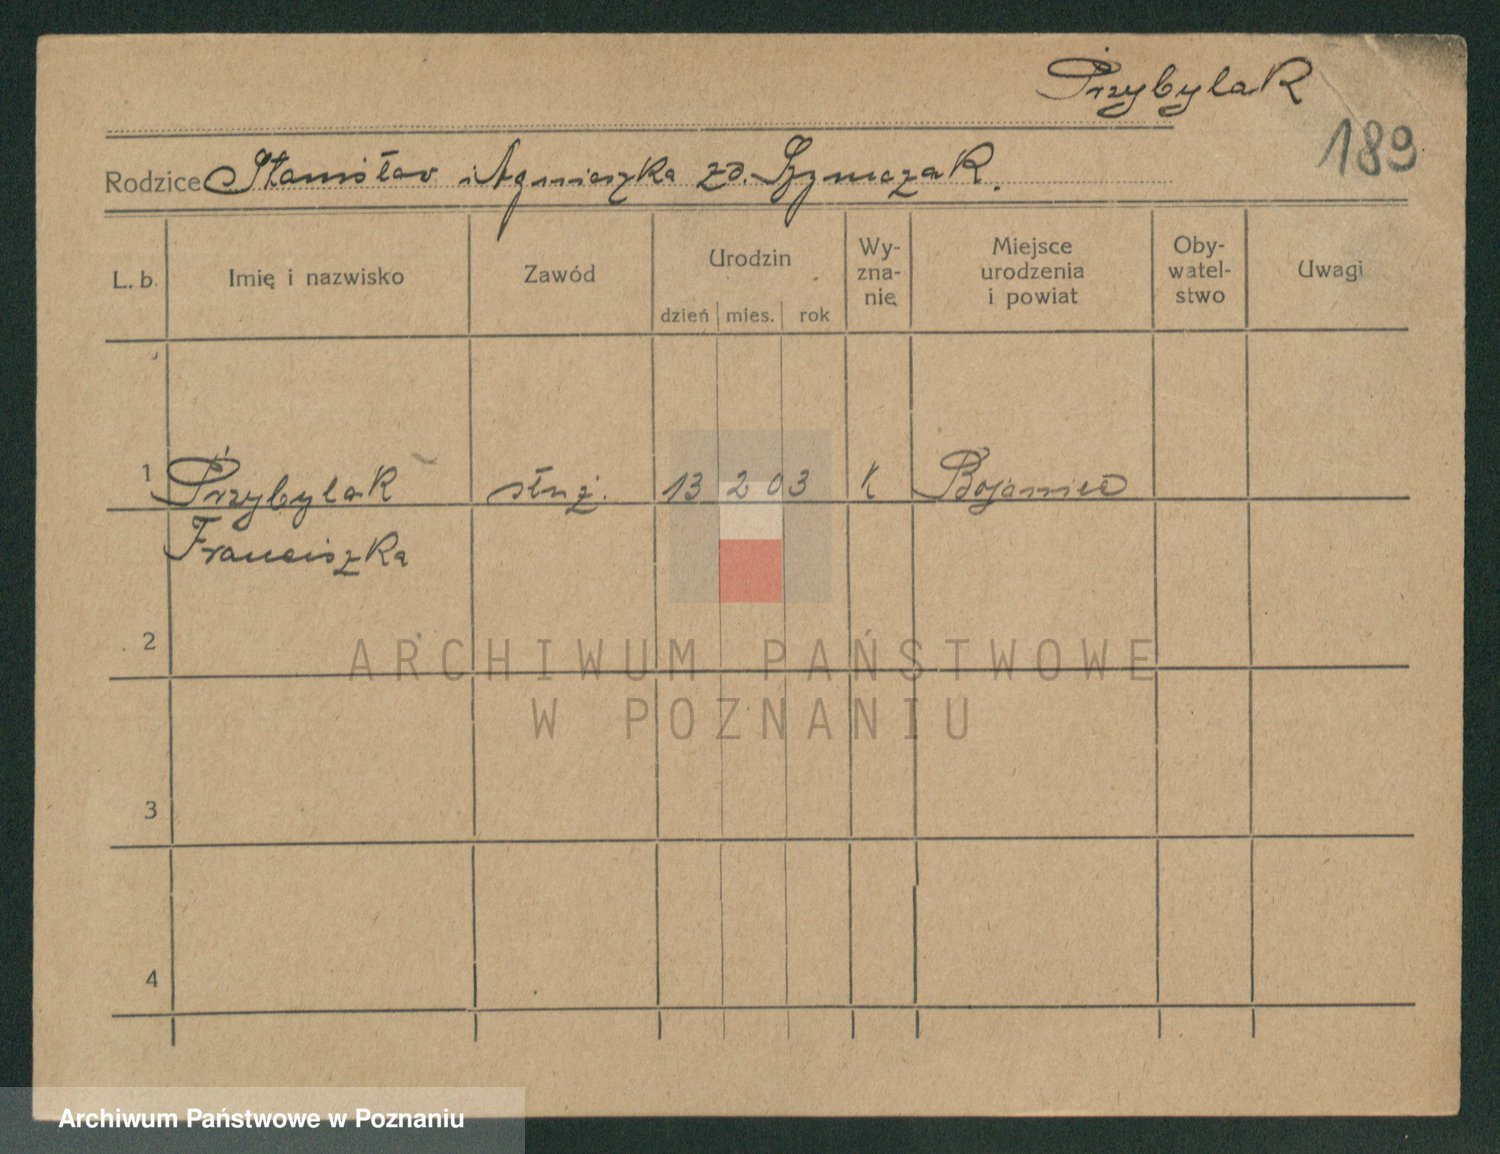 Przybylak
189
Rodzice Stanisław i Agnieszka zd. Szymczak.
L. b. Imię i nazwisko Zawód Urodzin Wy-zna-nie Miejsce urodzenia i powiat Oby-watel-stwo Uwagi
dzień mies. rok
1 Przybylak służ. 13 2 03 K Bojaniec
Franciszka
2
ARCHIWUM PAŃSTWOWE
W POZNANIU
3
4
Archiwum Państwowe w Poznaniu